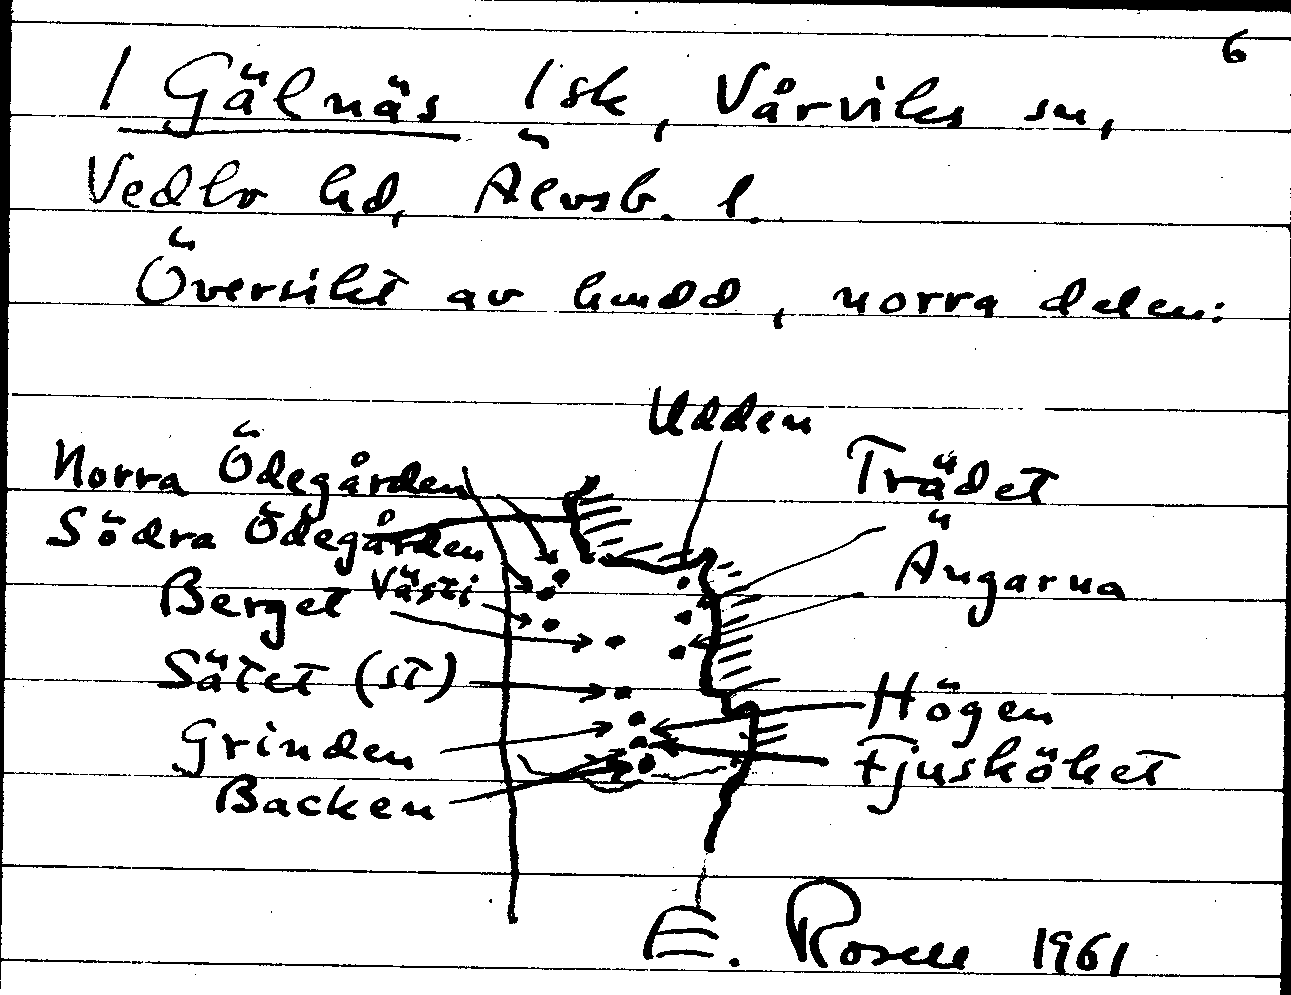 6
I Gälnäs 1 sk, Vårviks sn,
Vedbo hd, Älvsb. l.
Översikt av hmdd, norra delen:
Udden
Norra Ödegården
Trädet
Södra Ödegården
Ängarna
Berget Västi
Sätet (st)
Högen
Grinden
Fjusköket
Backen
E. Rosell 1961